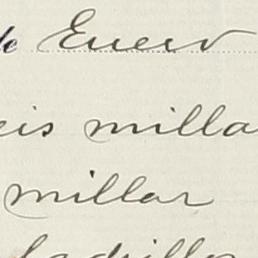 de Enero
eis milla
millar
ladrillo